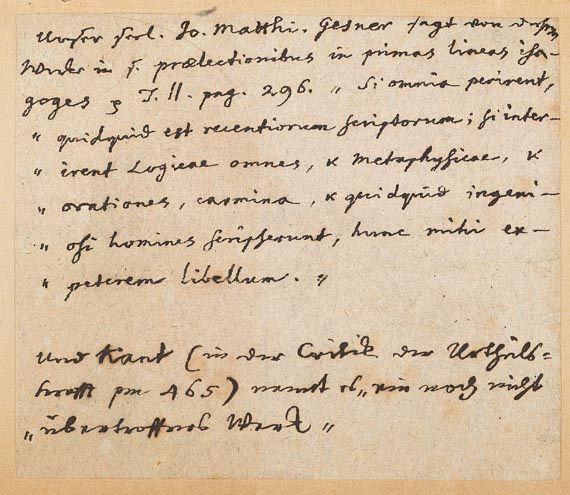 Unser seel. Jo. Matthi. Gesner sagt von diesem
Werke in s. prælectionibus in primas lineas isa-
goges ꝛc T. II. pag. 296. „ Si omnia perirent,
„ quidquid est recentiorum scriptorum; si inter-
„ irent Logicae omnes, & Metaphysicae, &
„ orationes, carmina, & quidquid ingeni-
„ osi homines scripserunt, hunc mihi ex-
„ peterem libellum. „
Und Kant (in der Critik der Urtheils-
krafft pm 465) nennt es „ ein noch nicht
„ übertroffnes Werk „